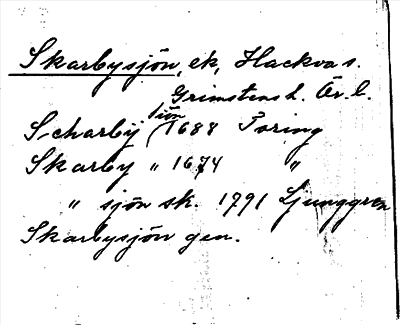 Skarbysjön, ek, Hackva s.
Grimstens h. Ör. l.
Scharbÿ (siön 1688 Toring
Skarby " 1674 "
" sjön sk. 1791 Ljunggren
Skarbysjön gen.